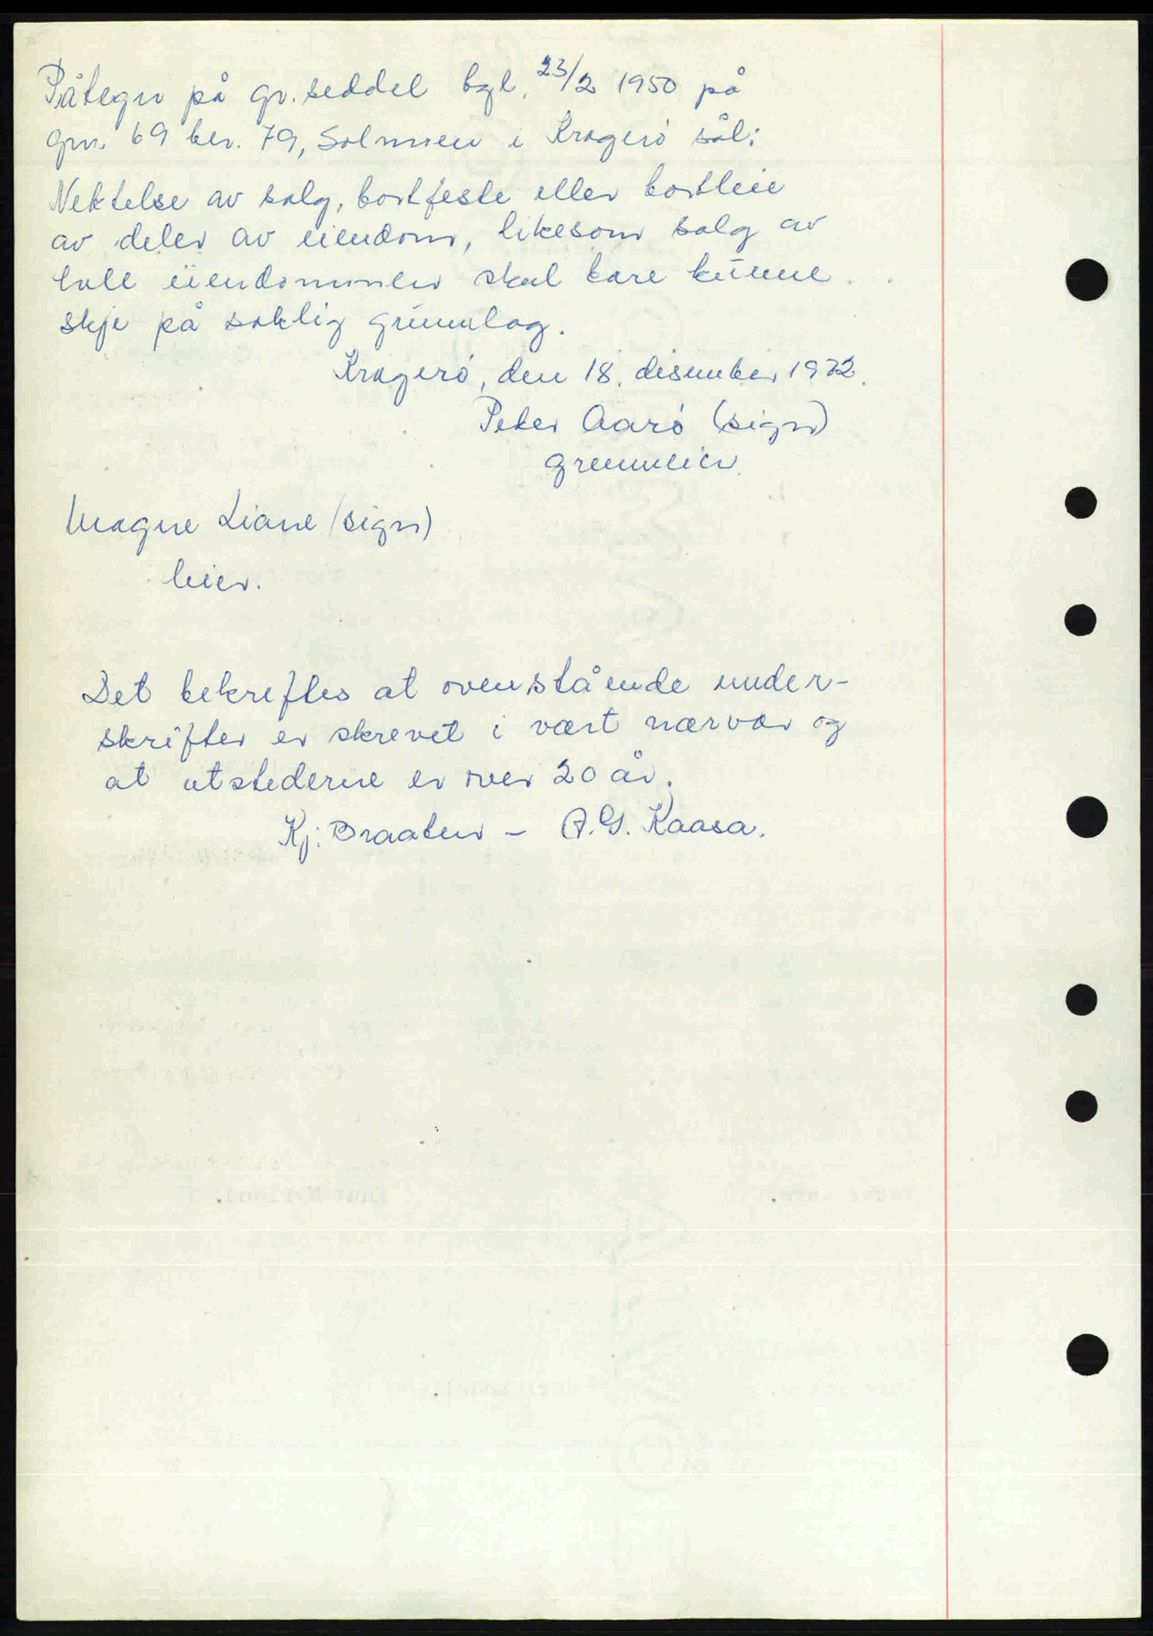 Påtegn på gr. seddel tgl. 23/2 1950 på
gnr. 69 bnr. 79, Solmuen i Kragerø sål:
Nektelse av salg, bortfeste eller bortleie
av deler av eiendom, likesom salg av
hele eiendommen skal bare kunne
skje på saklig grunnlag.
Kragerø, den 18. desember 1972.
Peter Aarø (sign)
grunneier.
Magne Liane (sign)
leier.
Det bekreftes at ovenstående under-
skrifter er skrevet i vårt nærvær og
at utstederne er over 20 år.
Kj. Braaten - A.G. Kaasa.